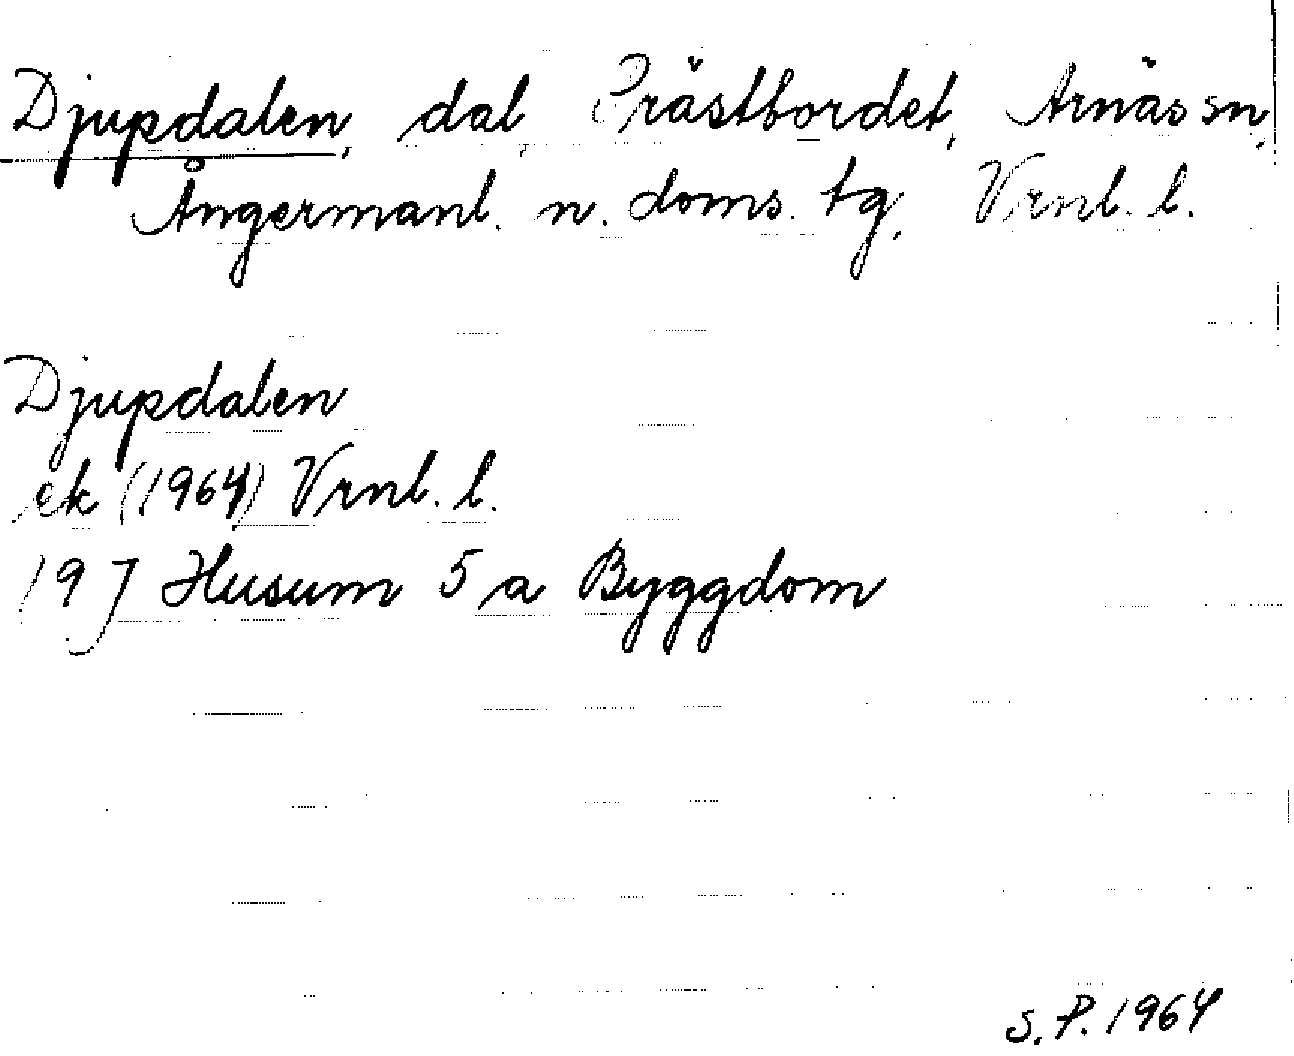 Djupdalen, dal, Prästbordet, Arnäs sn,
Ångermanl. n. doms. tg, Vrnl. l.
Djupdalen
ek (1964) Vrnl. l.
19 J Husum 5 a Byggdom
S. P. 1964